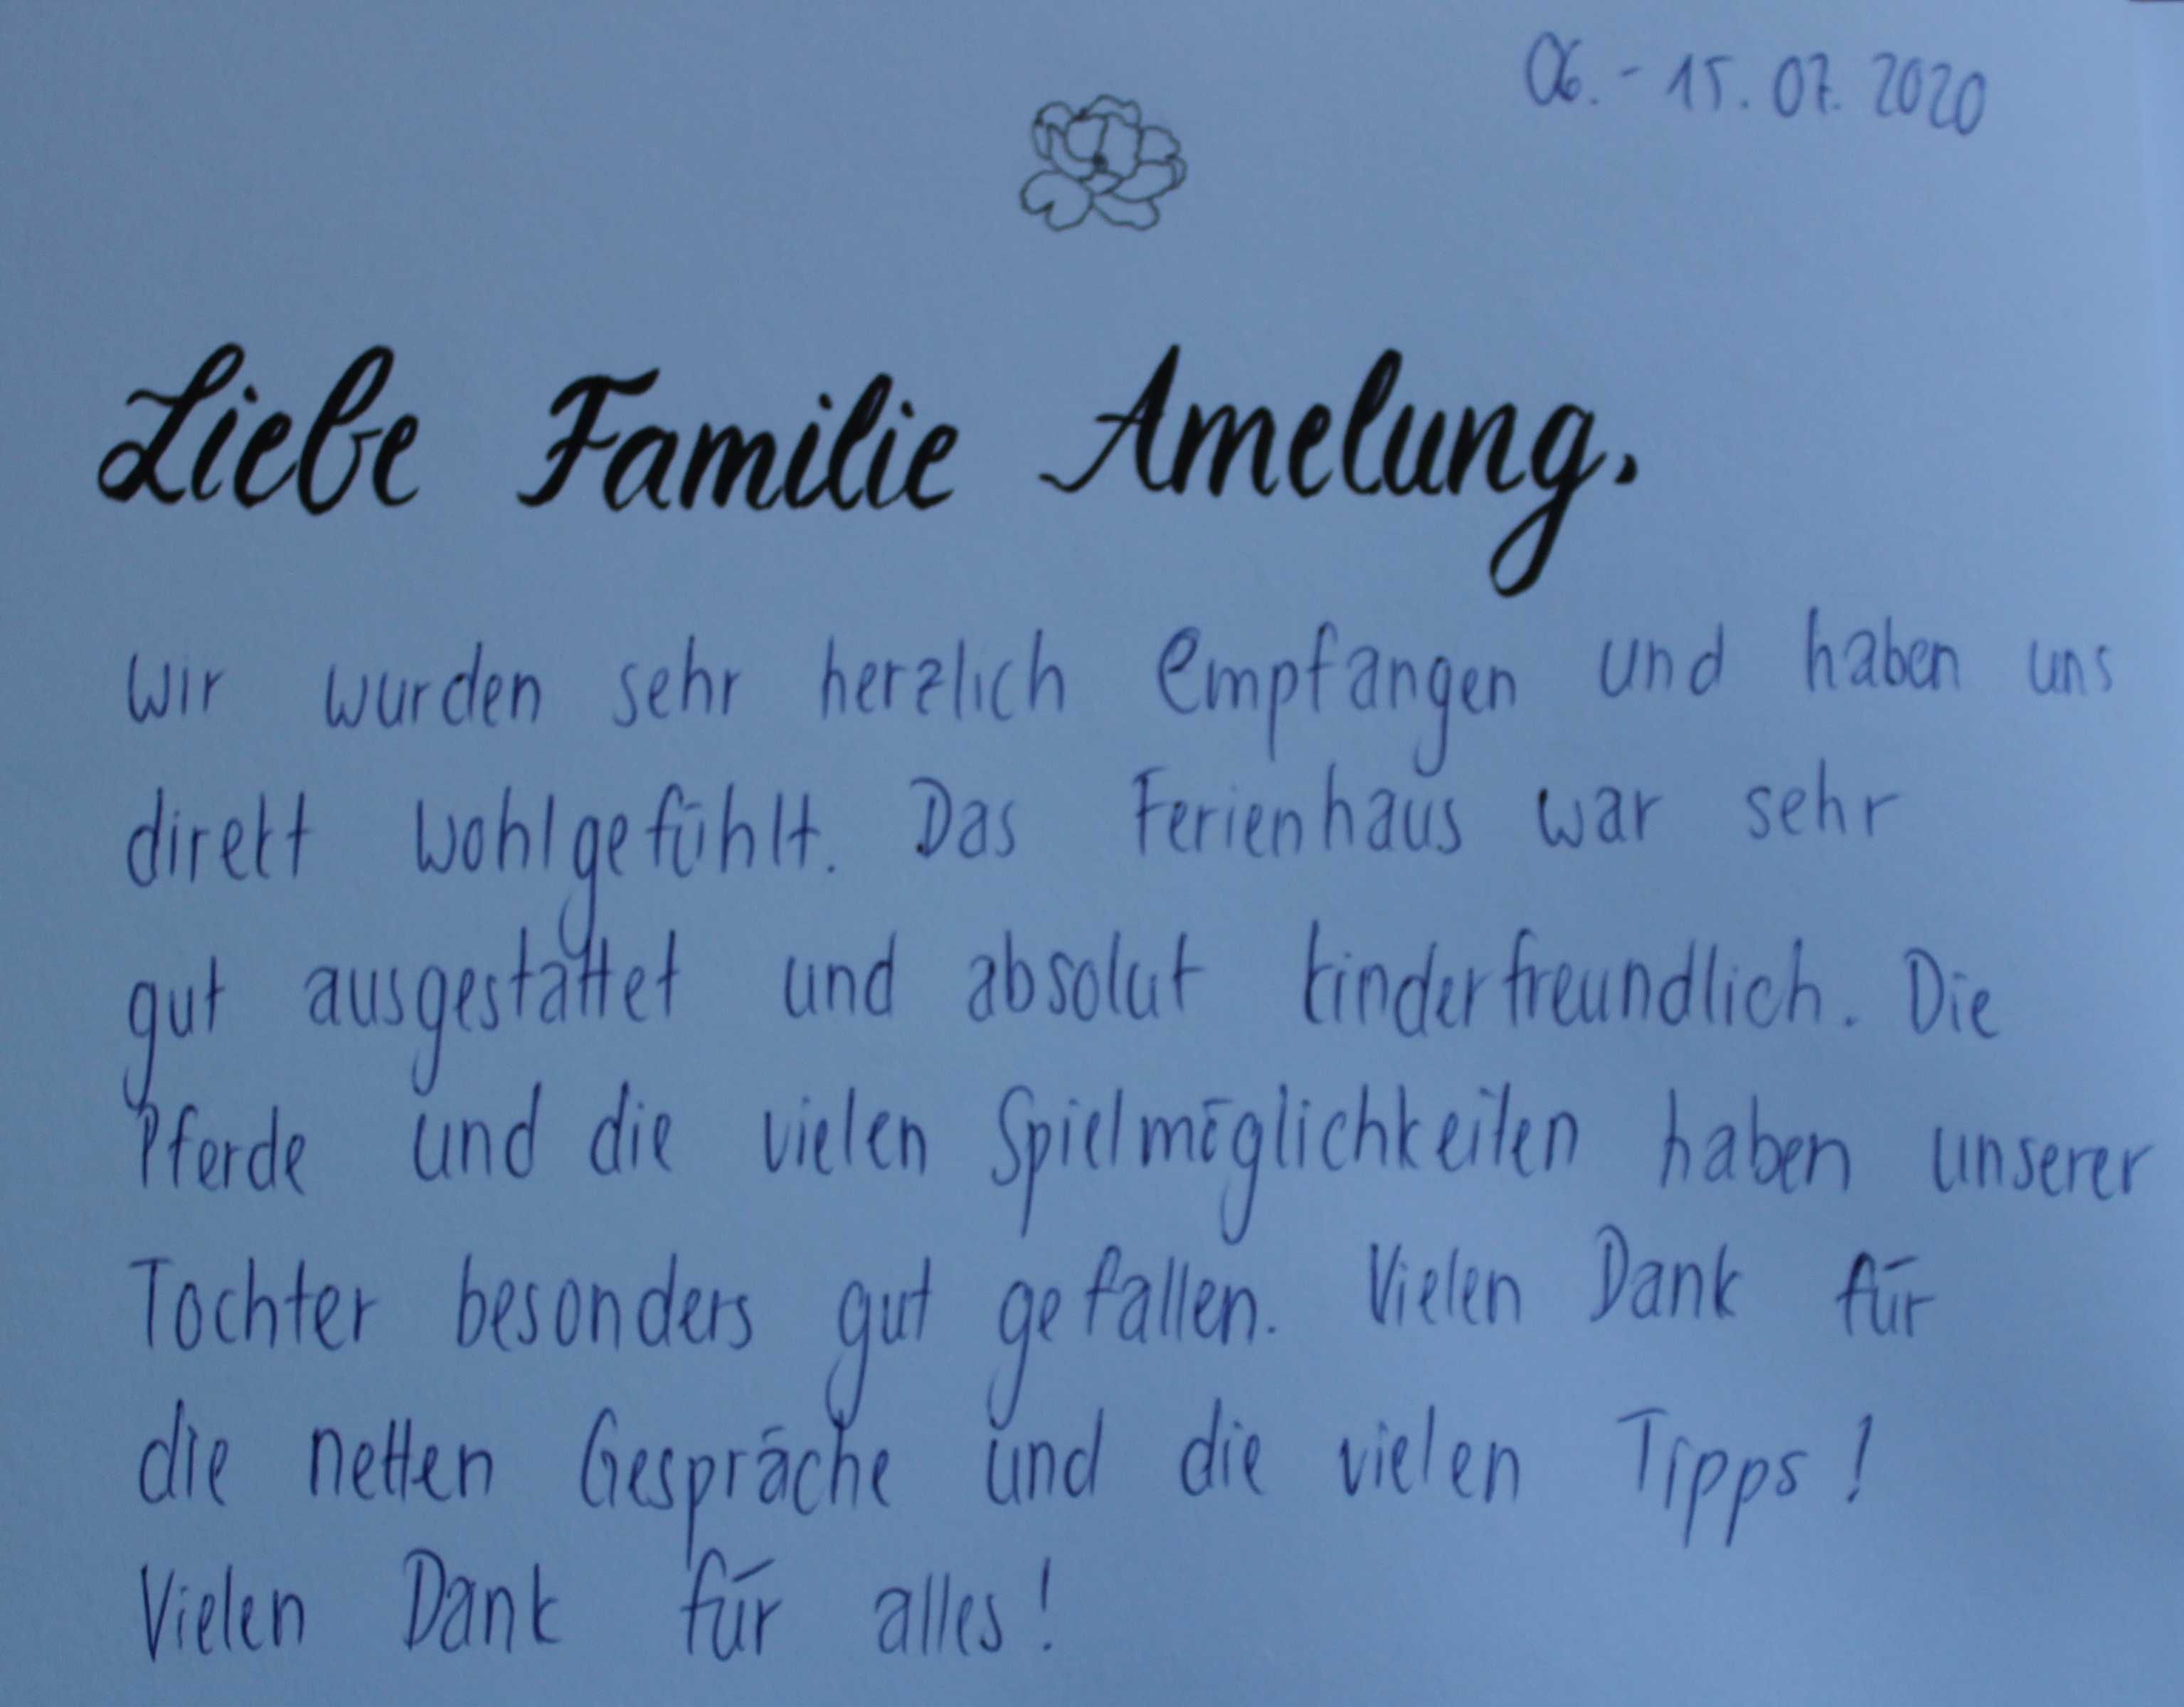 06. - 15. 07. 2020
Liebe Familie Amelung,
wir wurden sehr herzlich empfangen und haben uns
direkt wohlgefühlt. Das Ferienhaus war sehr
gut ausgestattet und absolut kinderfreundlich. Die
Pferde und die vielen Spielmöglichkeiten haben unserer
Tochter besonders gut gefallen. Vielen Dank für
die netten Gespräche und die vielen Tipps!
Vielen Dank für alles!